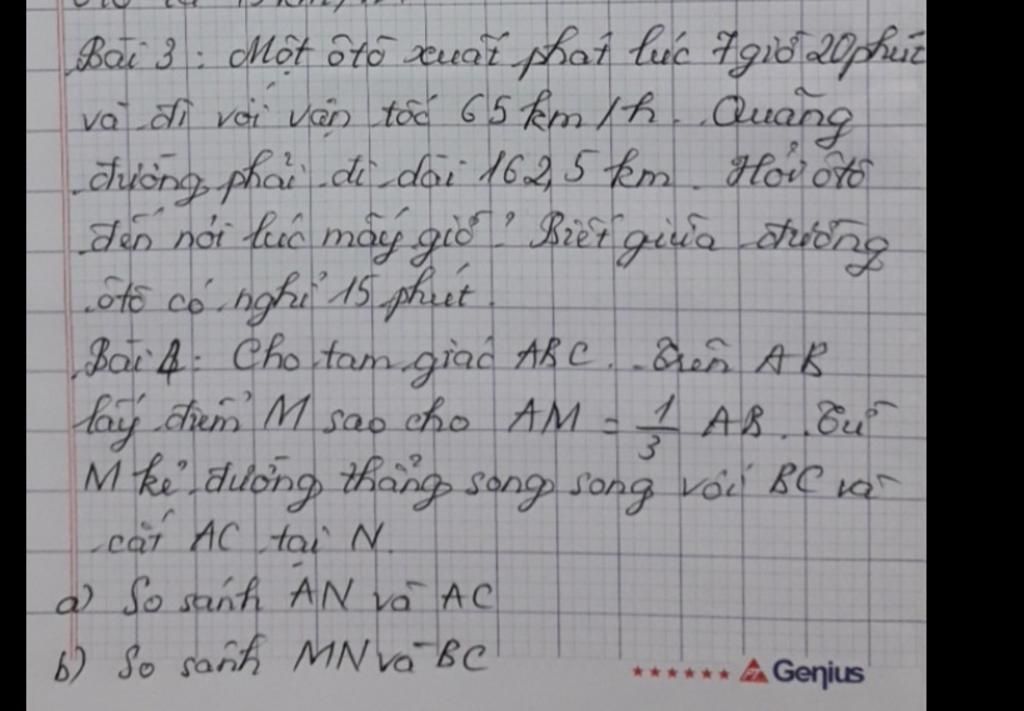 Bài 3 : Một ôtô xuất phát lúc 7 giờ 20 phút
và đi với vận tốc 65 km/h. Quãng
đường phải đi dài 162,5 km. Hỏi ôtô
đến nơi lúc mấy giờ? Biết giữa đường
ôtô có nghỉ 15 phút.
Bài 4 : Cho tam giác ABC. Trên AB
lấy điểm M sao cho AM = 1/3 AB. Từ
M kẻ đường thẳng song song với BC và
cắt AC tại N.
a) So sánh AN và AC
b) So sánh MN và BC
Genius